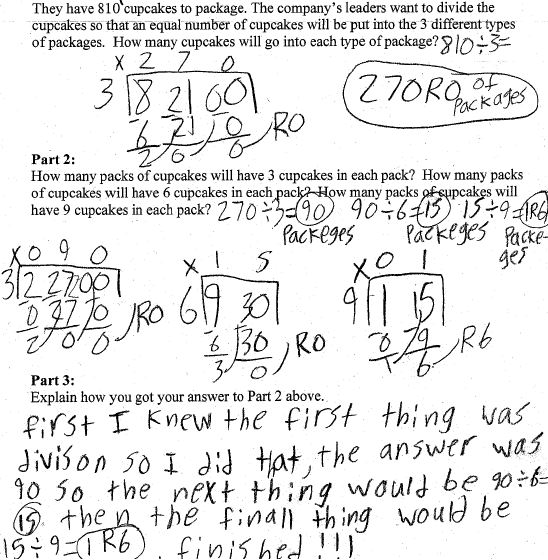 They have 810 cupcakes to package. The company's leaders want to divide the
cupcakes so that an equal number of cupcakes will be put into the 3 different types
of packages. How many cupcakes will go into each type of package? 810÷3=
x 2 7 0
3 8 21 00 R0
6 21 0
2 0 0
270R0 of
Packages
Part 2:
How many packs of cupcakes will have 3 cupcakes in each pack? How many packs
of cupcakes will have 6 cupcakes in each pack? How many packs of cupcakes will
have 9 cupcakes in each pack? 270÷3=90 90÷6=15 15÷9=1R6
Packeges Packeges Packe-
ges
x 0 9 0
3 2 27 00 R0
0 27 0
2 0 0
x 1 5
6 9 30 R0
6 30
3 0
x 0 1
9 1 15 R6
0 9
1 6
Part 3:
Explain how you got your answer to Part 2 above.
first I knew the first thing was
divison so I did that, the answer was
90 so the next thing would be 90÷6=
15 then the finall thing would be
15÷9=1R6. finished!!!